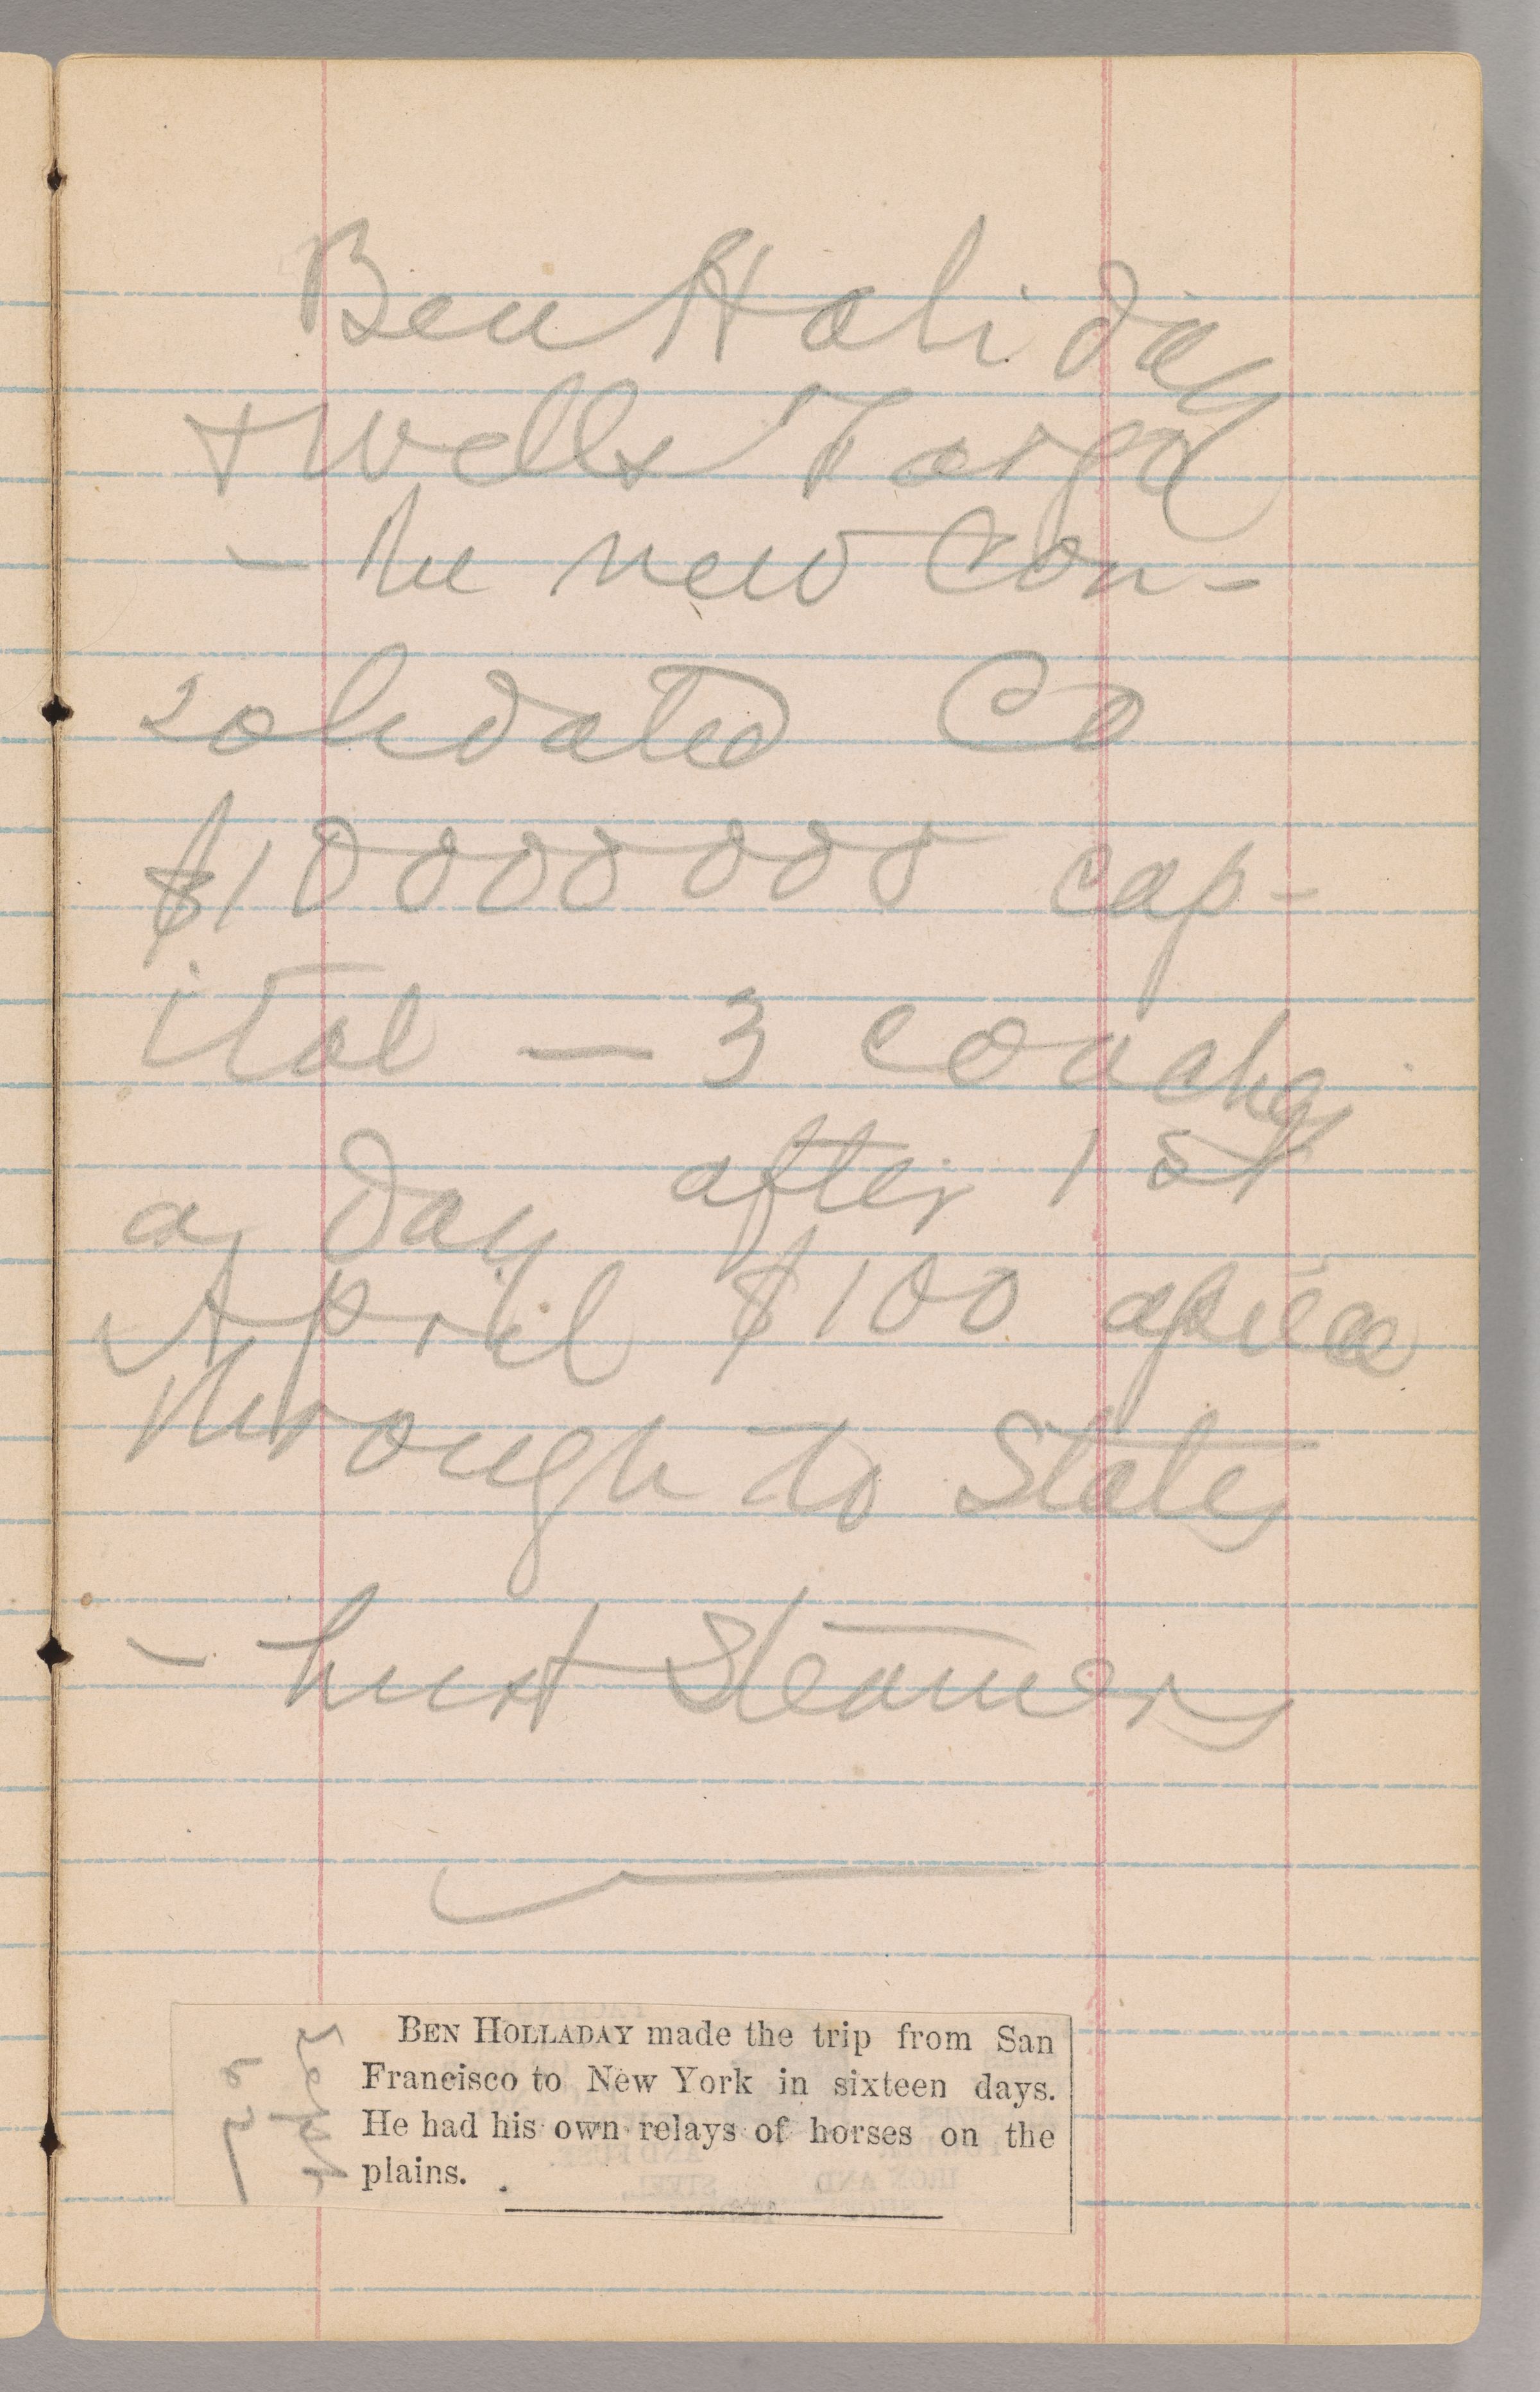 Ben Holiday
+ Wells Fargo
- the new Con-
solidated Co
$10000000 cap-
ital — 3 coaches
a day after 1st
April $100 apiece
through to States
- hurt Steamers
BEN HOLLADAY made the trip from San
Francisco to New York in sixteen days.
He had his own relays of horses on the
plains.